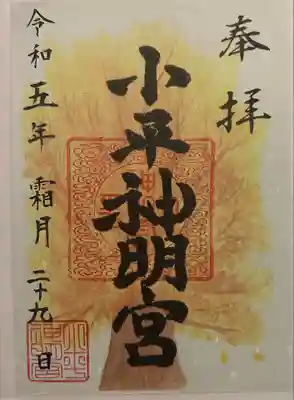 奉拝
小平神明宮
令和五年霜月二十九日